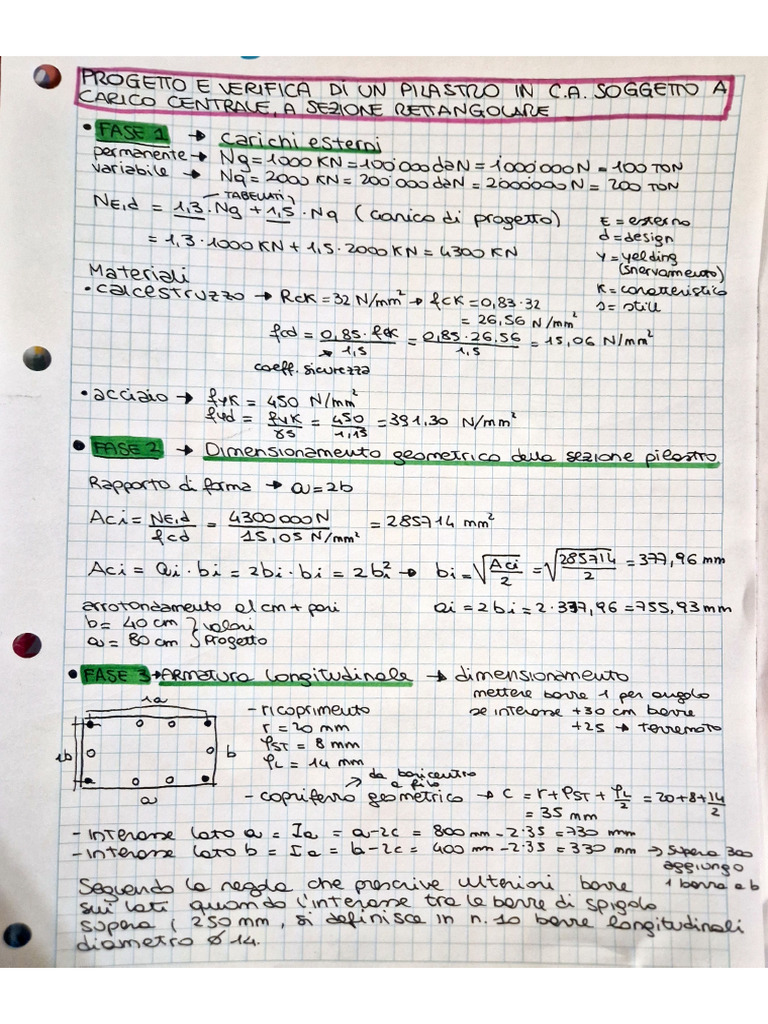 PROGETTO E VERIFICA DI UN PILASTRO IN C.A. SOGGETTO A
CARICO CENTRALE, A SEZIONE RETTANGOLARE
• FASE 1 → carichi esterni
permanente → Ng = 1000 KN = 100'000 daN = 1'000'000 N = 100 TON
variabile → Nq = 2000 KN = 200'000 daN = 2000000 N = 200 TON
TABELLATI
NE,d = 1,3 · Ng + 1,5 · Nq (carico di progetto)
= 1,3 · 1000 KN + 1,5 · 2000 KN = 4300 KN
E = esterno
d = design
Y = yelding
(snervamento)
K = caratteristico
s = still
Materiali
• calcestruzzo → RcK = 32 N/mm² → fcK = 0,83 · 32
= 26,56 N/mm²
fcd = 0,85 · fcK / 1,5 = 0,85 · 26,56 / 1,5 = 15,06 N/mm²
coeff. sicurezza
• acciaio → fyK = 450 N/mm²
fyd = fyK / γs = 450 / 1,15 = 391,30 N/mm²
• FASE 2 → Dimensionamento geometrico della sezione pilastro
Rapporto di forma → a = 2b
Aci = NE,d / fcd = 4300000 N / 15,05 N/mm² = 285714 mm²
Aci = ai · bi = 2bi · bi = 2bi² → bi = √Aci / 2 = √285714 / 2 = 377,96 mm
arrotondamento al cm + pari
ai = 2bi = 2 · 377,96 = 755,93 mm
b = 40 cm } valori
a = 80 cm } Progetto
• FASE 3 → ARMATURA longitudinale → dimensionamento
mettere barre 1 per angolo
se interasse +30 cm barre
+25 → terremoto
ia
ib
b
a
- ricoprimento
r = 20 mm
φST = 8 mm
φL = 14 mm
da baricentro
a filo
- copriferro geometrico → c = r + φST + φL / 2 = 20 + 8 + 14 / 2
= 35 mm
- Interasse lato a = Ia = a - 2c = 800 mm - 2 · 35 = 730 mm
- Interasse lato b = Ia = b - 2c = 400 mm - 2 · 35 = 330 mm → supera 300
aggiungo
1 barra a b
Seguendo la regola che prescrive ulteriori barre
sui lati quando l'interasse tra le barre di spigolo
supera i 250 mm, si definisce in n. 10 barre longitudinali
diametro ø 14.